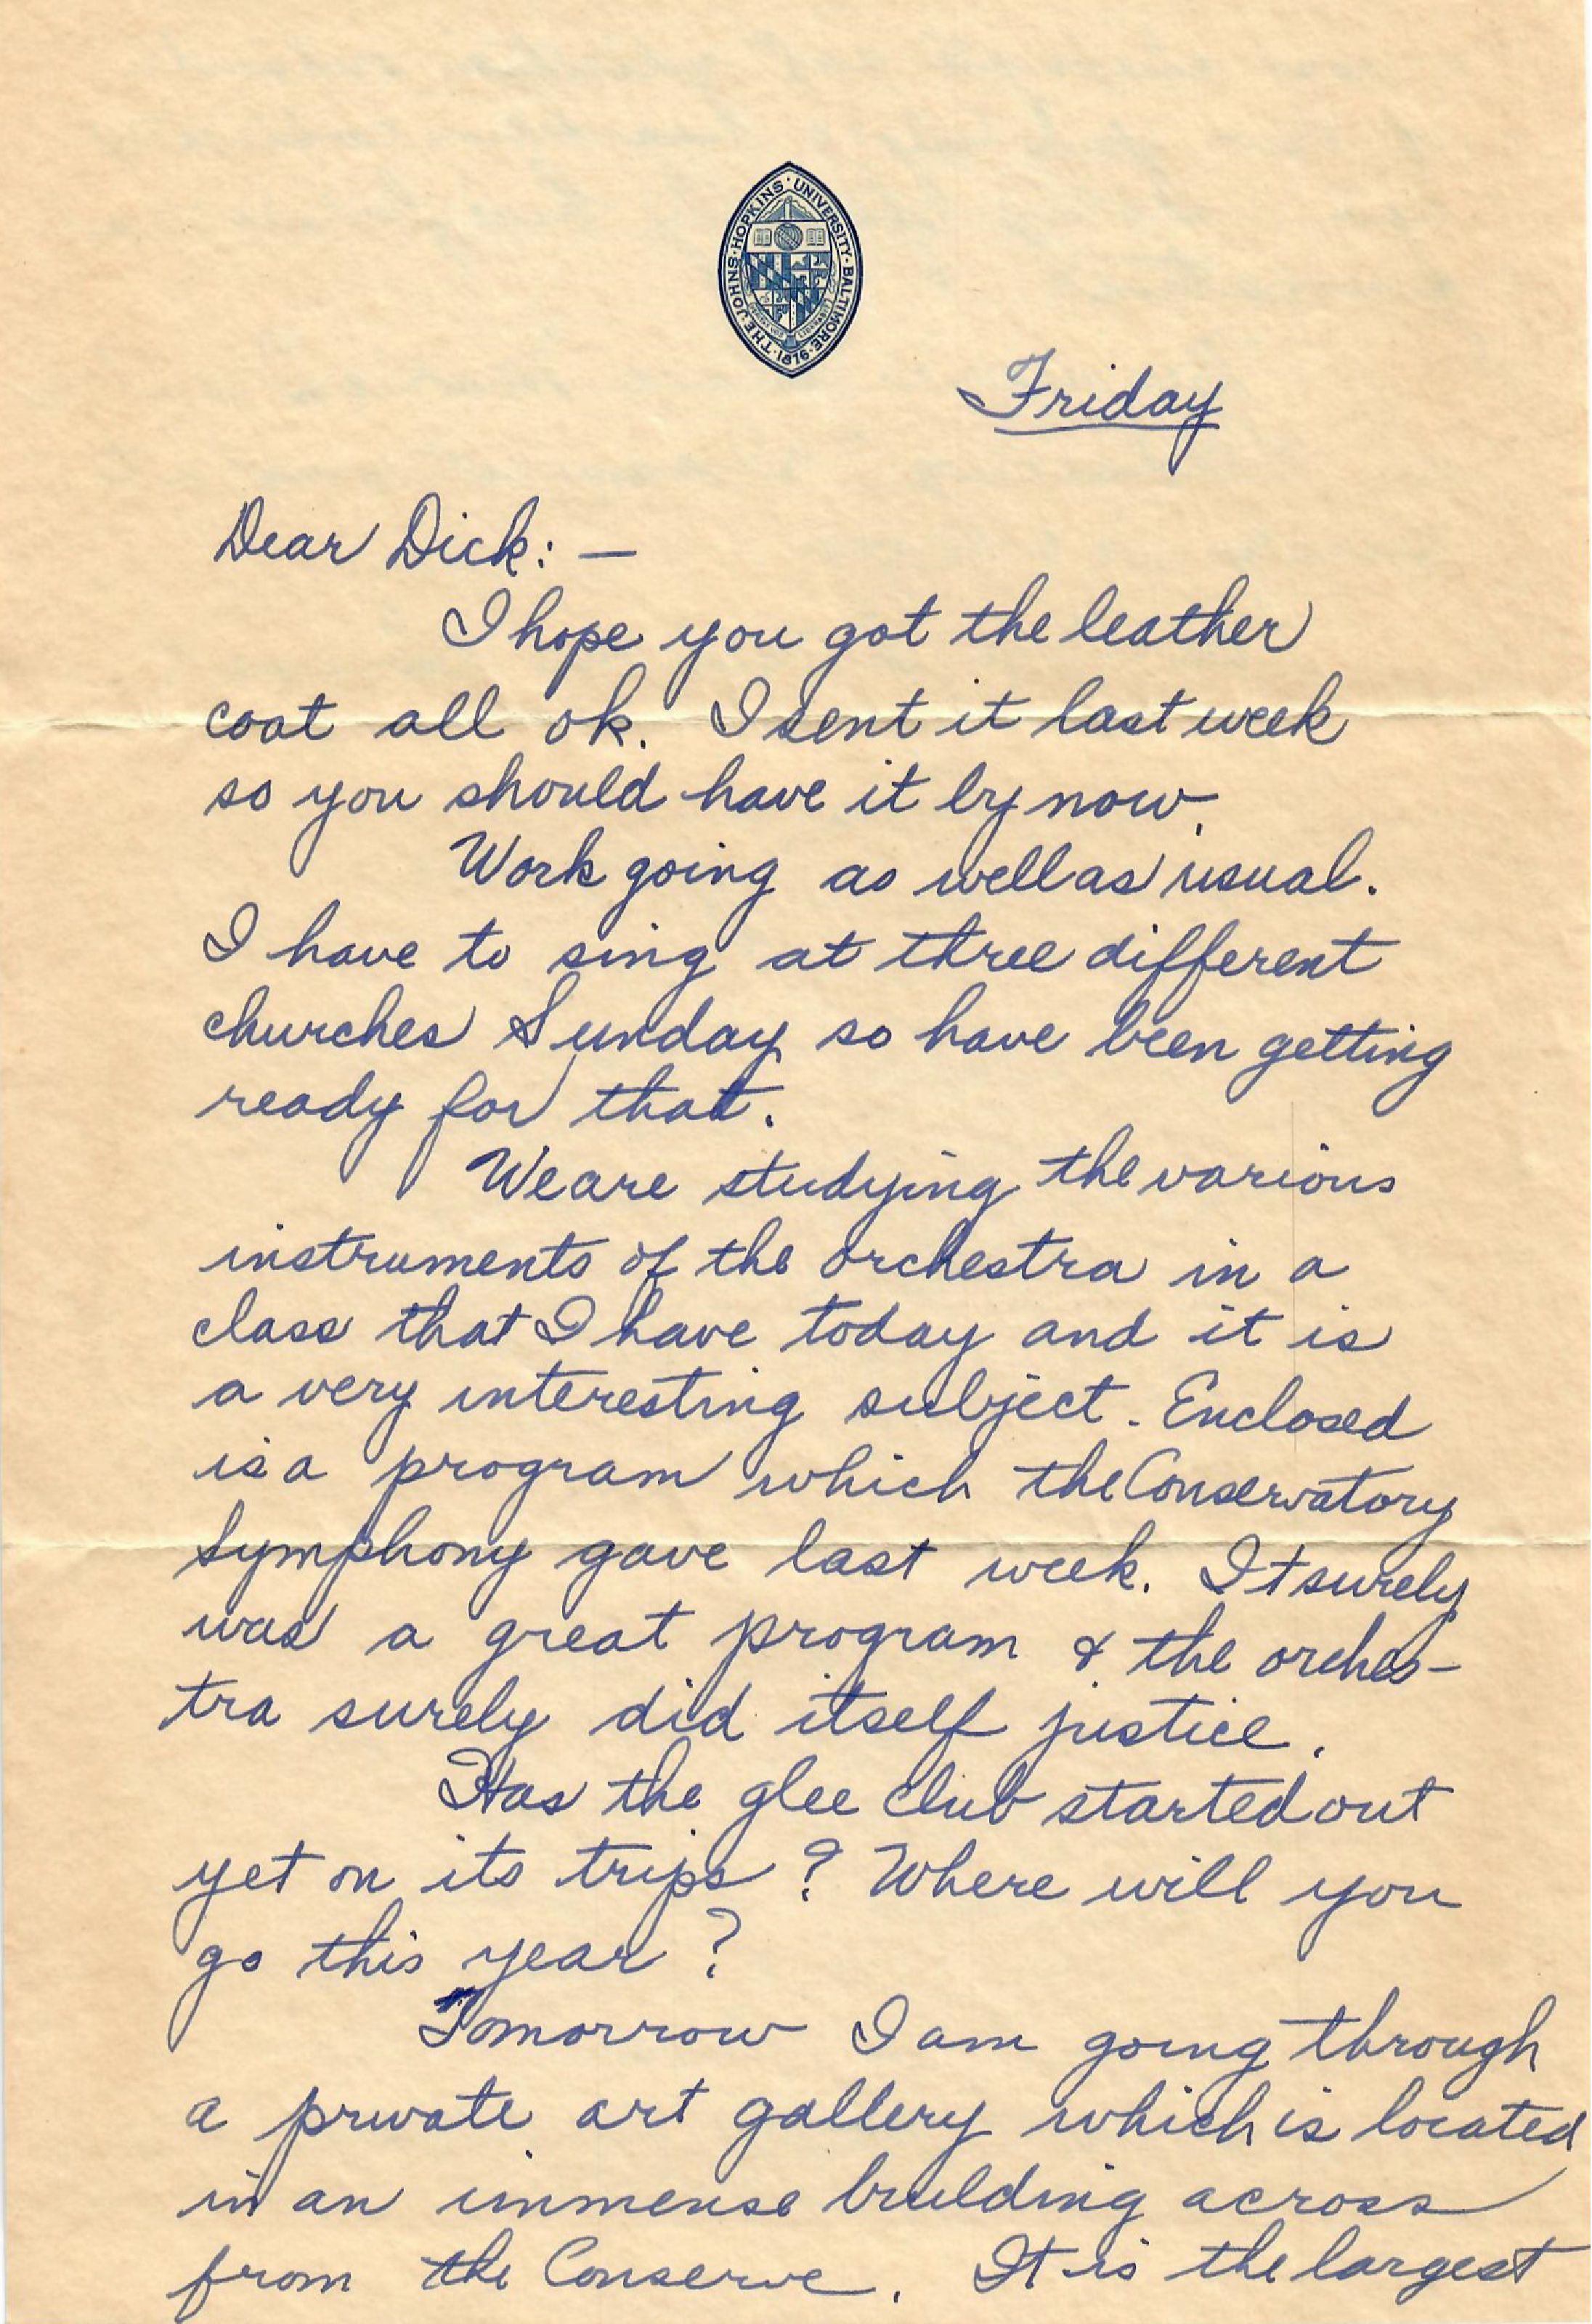 THE · JOHNS · HOPKINS · UNIVERSITY · BALTIMORE · 1876 ·
Friday
Dear Dick: —
I hope you got the leather
coat all ok. I sent it last week
so you should have it by now.
Work going as well as usual.
I have to sing at three different
churches Sunday so have been getting
ready for that.
We are studying the various
instruments of the orchestra in a
class that I have today and it is
a very interesting subject. Enclosed
is a program which the Conservatory
Symphony gave last week. It surely
was a great program & the orches-
tra surely did itself justice.
Has the glee club started out
yet on its trips? Where will you
go this year?
Tomorrow I am going through
a private art gallery which is located
in an immense building across
from the Conserve. It is the largest